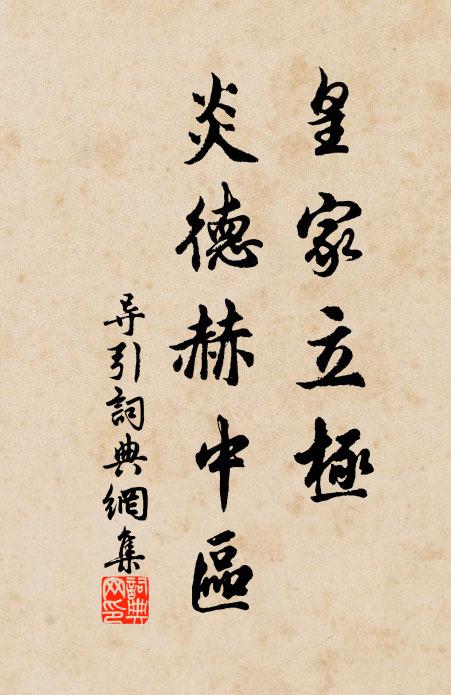 皇家立極
炎德赫中區
导引詞典網集
詞典
网印